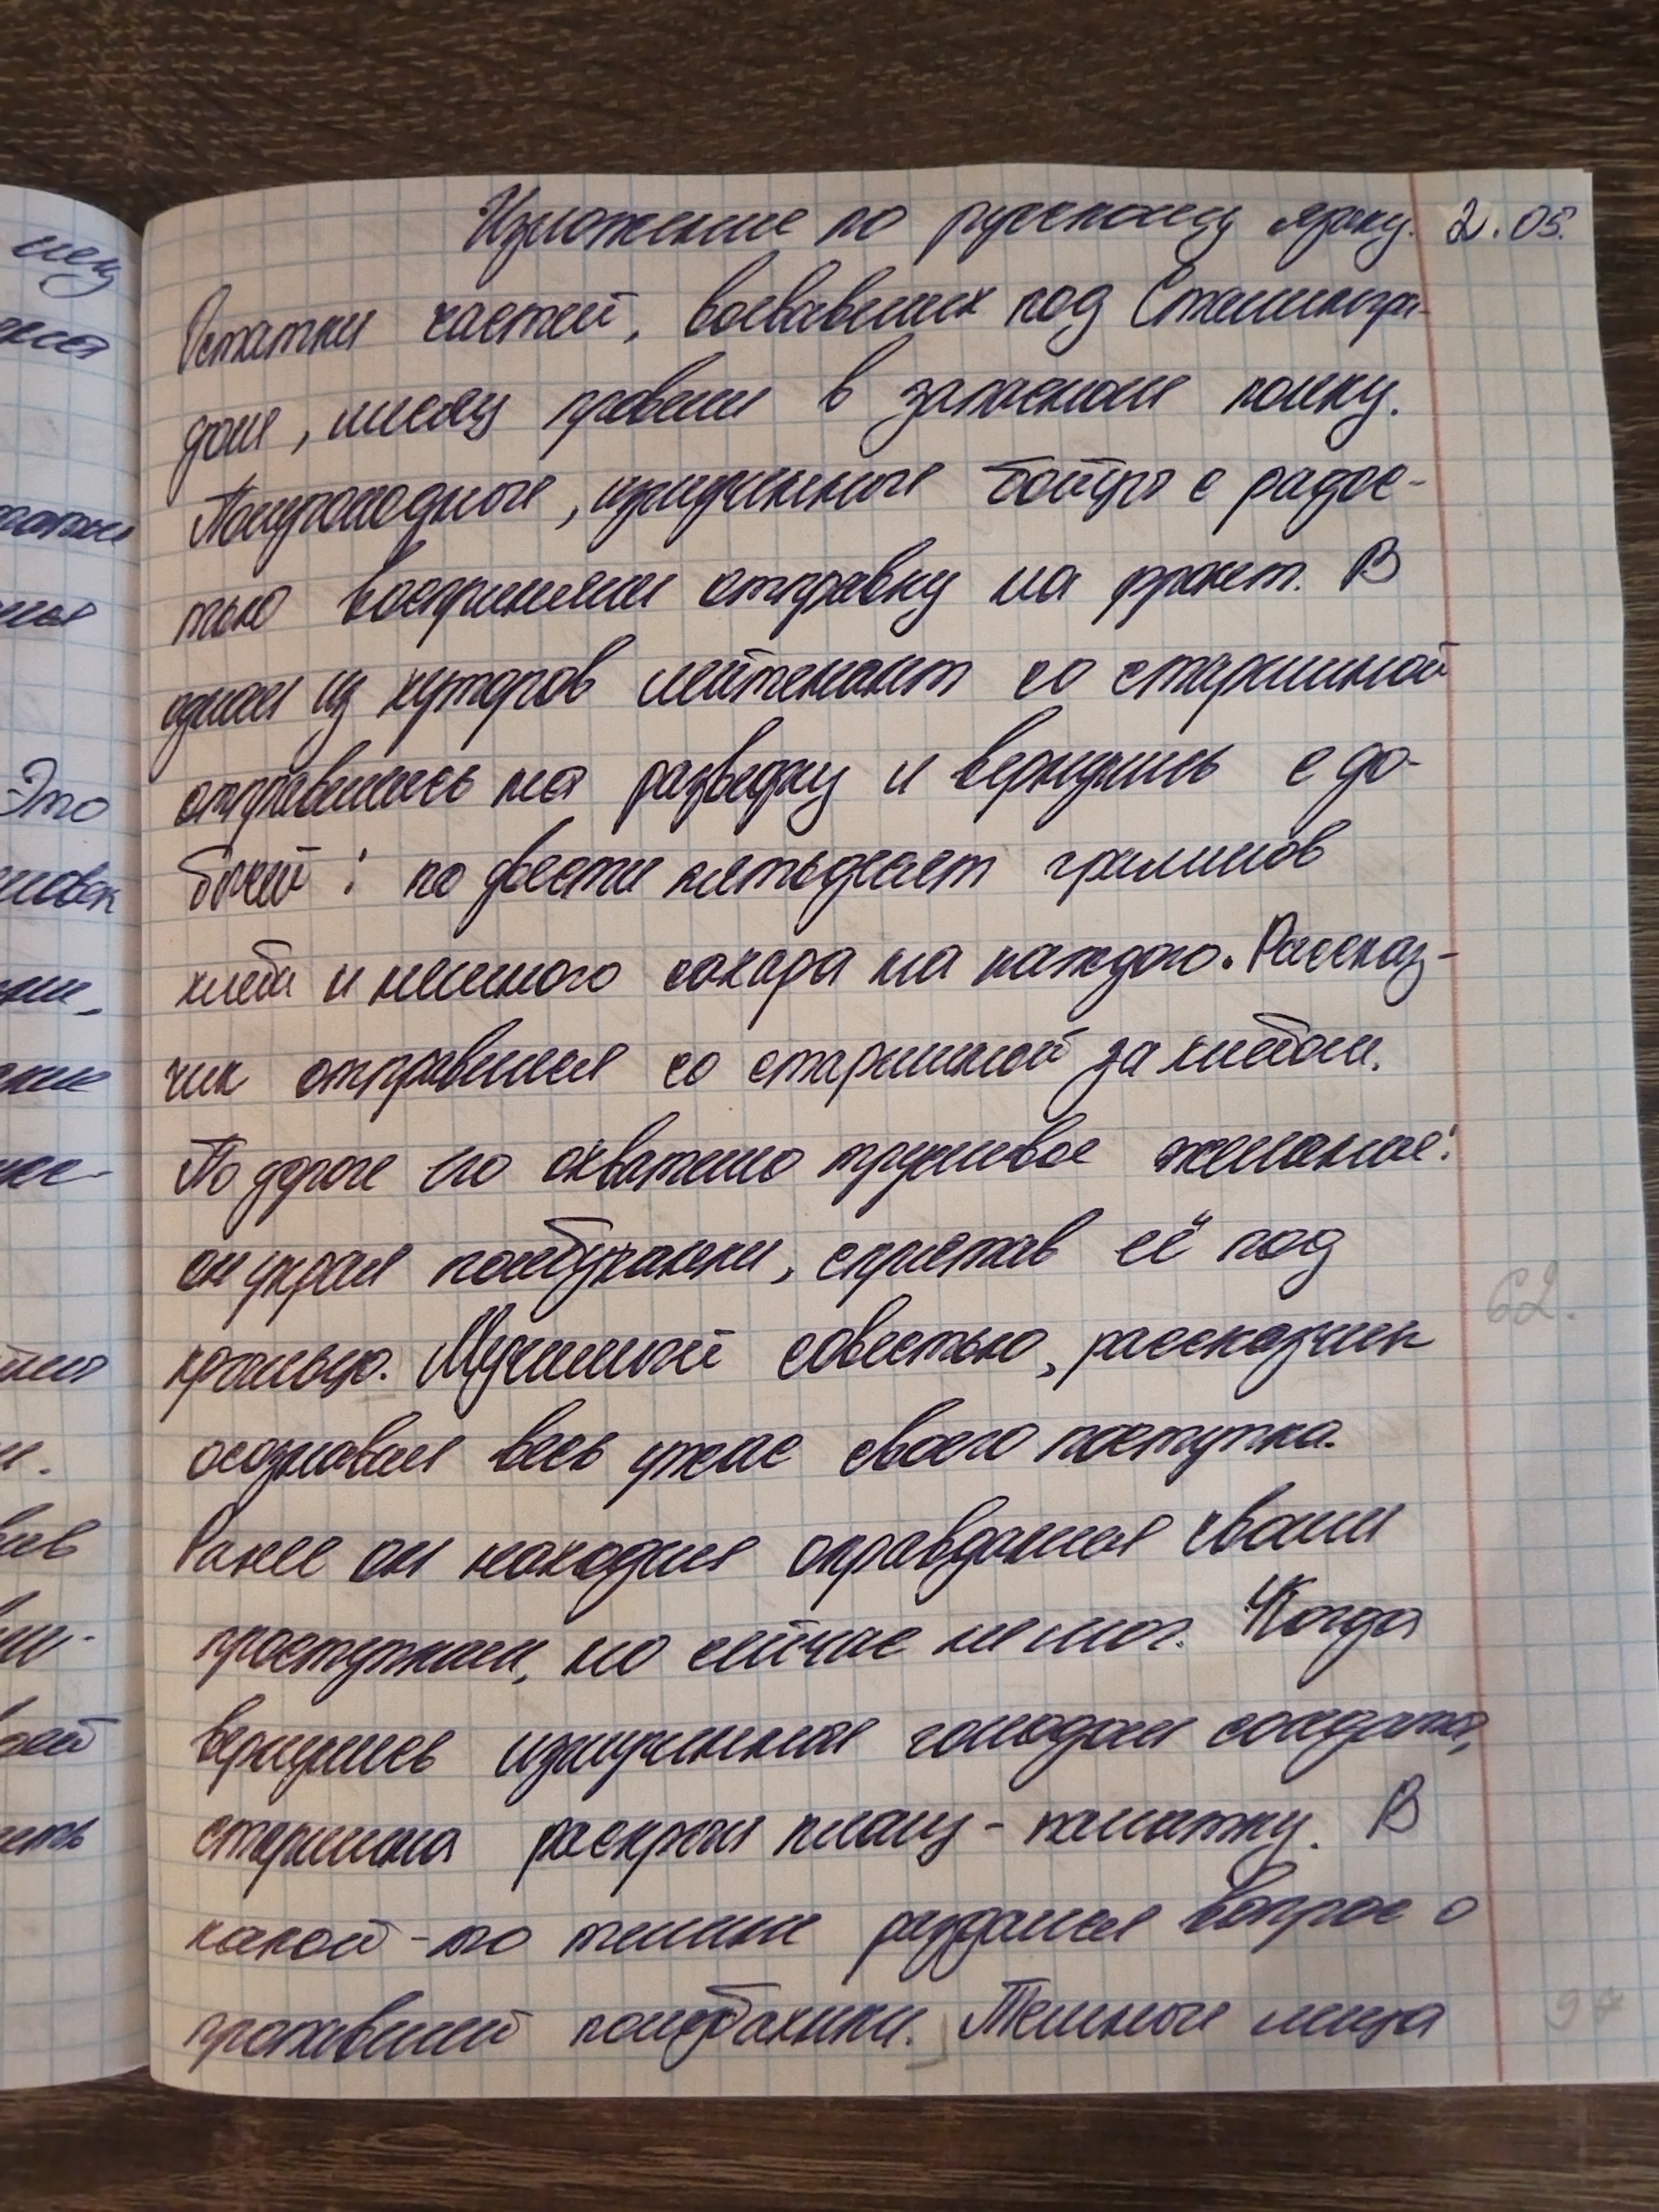 Изложение по русскому языку. 2.05.
Остатки частей, воевавших под Сталингра-
дом, зиму провели в запасном полку.
Полуголодные, измученные бойцы с радос-
тью восприняли отправку на фронт. В
одном из хуторов лейтенант со старшиной
отправились на разведку и вернулись с до-
бычей: по двести пятьдесят граммов
хлеба и немного сахара на каждого. Рассказ-
чик отправился со старшиной за хлебом.
По дороге его охватило трусливое желание:
он украл полбуханки, спрятав её под
крыльцо. Мучимый совестью, рассказчик
осознавал весь ужас своего поступка.
Ранее он находил оправдания своим
проступкам, но сейчас не мог. Когда
вернулись измученные голодом солдаты,
старшина раскрыл плащ-палатку. В
какой-то тишине раздался вопрос о
пропавшей полубуханки. Темные лица
62.
94
Это